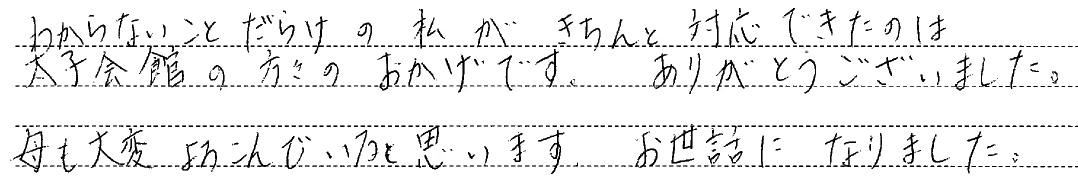 わからないことだらけの私がきちんと対応できたのは
太子会館の方々のおかげです。ありがとうございました。
母も大変よろこんでいると思います。お世話になりました。